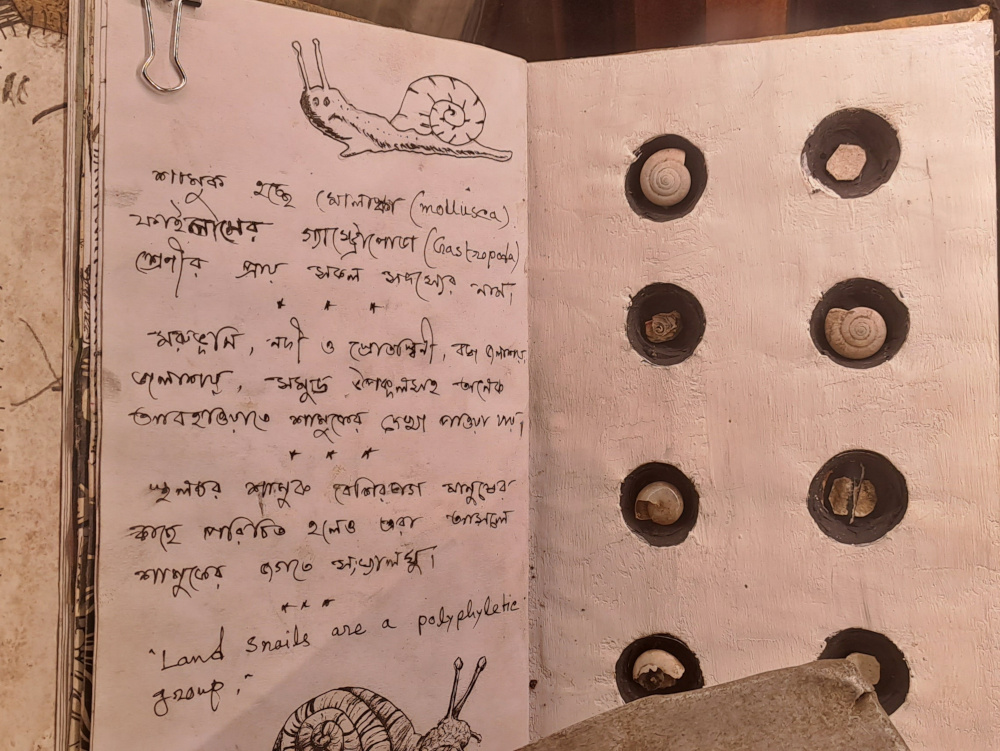 শামুক হচ্ছে মোলাস্কা (mollusca)
ফাইলামের গ্যাস্ট্রোপোডা (Gastropoda)
শ্রেণীর প্রায় সকল সদস্যের নাম।
* * *
মরুভূমি, নদী ও স্রোতস্বিনী, বদ্ধ জলাশয়,
জলাশয়, সমুদ্র উপকূলসহ অনেক
আবহাওয়াতে শামুকের দেখা পাওয়া যায়।
* * *
স্থলচর শামুক বেশিরভাগ মানুষের
কাছে পরিচিত হলেও তারা আসলে
শামুকের জগতে সংখ্যালঘু।
* * *
"Land snails are a polyphyletic
group."